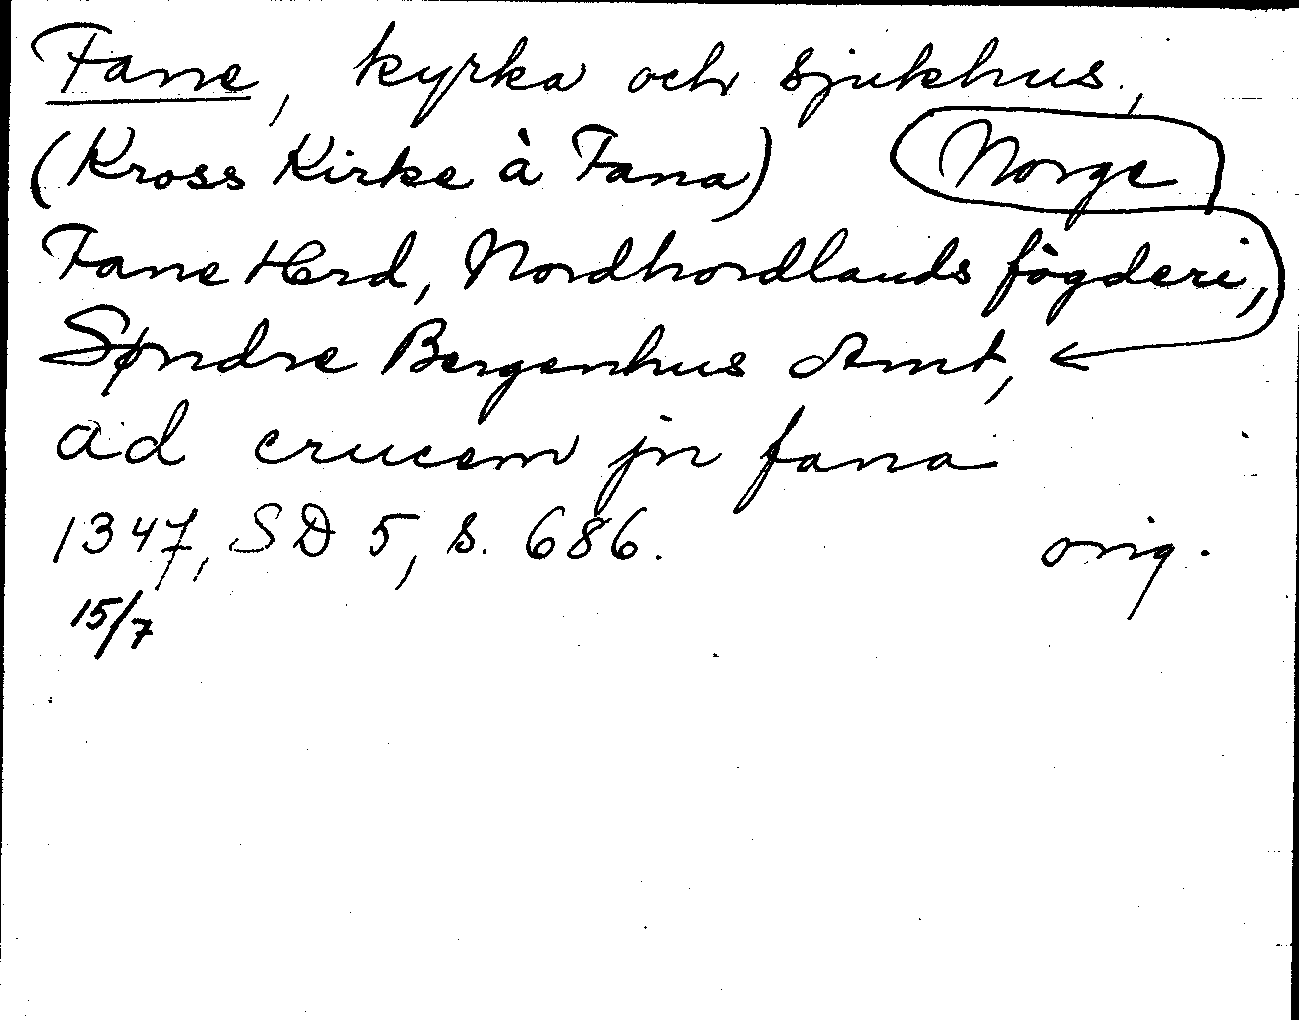 Fane, kyrka och sjukhus,
(Kross Kirke à Fana) Norge
Fane Hrd, Nordhordlands fögderi,
Søndre Bergenhus Amt,
ad crucem jn fana
1347, SD 5, s. 686. orig.
15/7